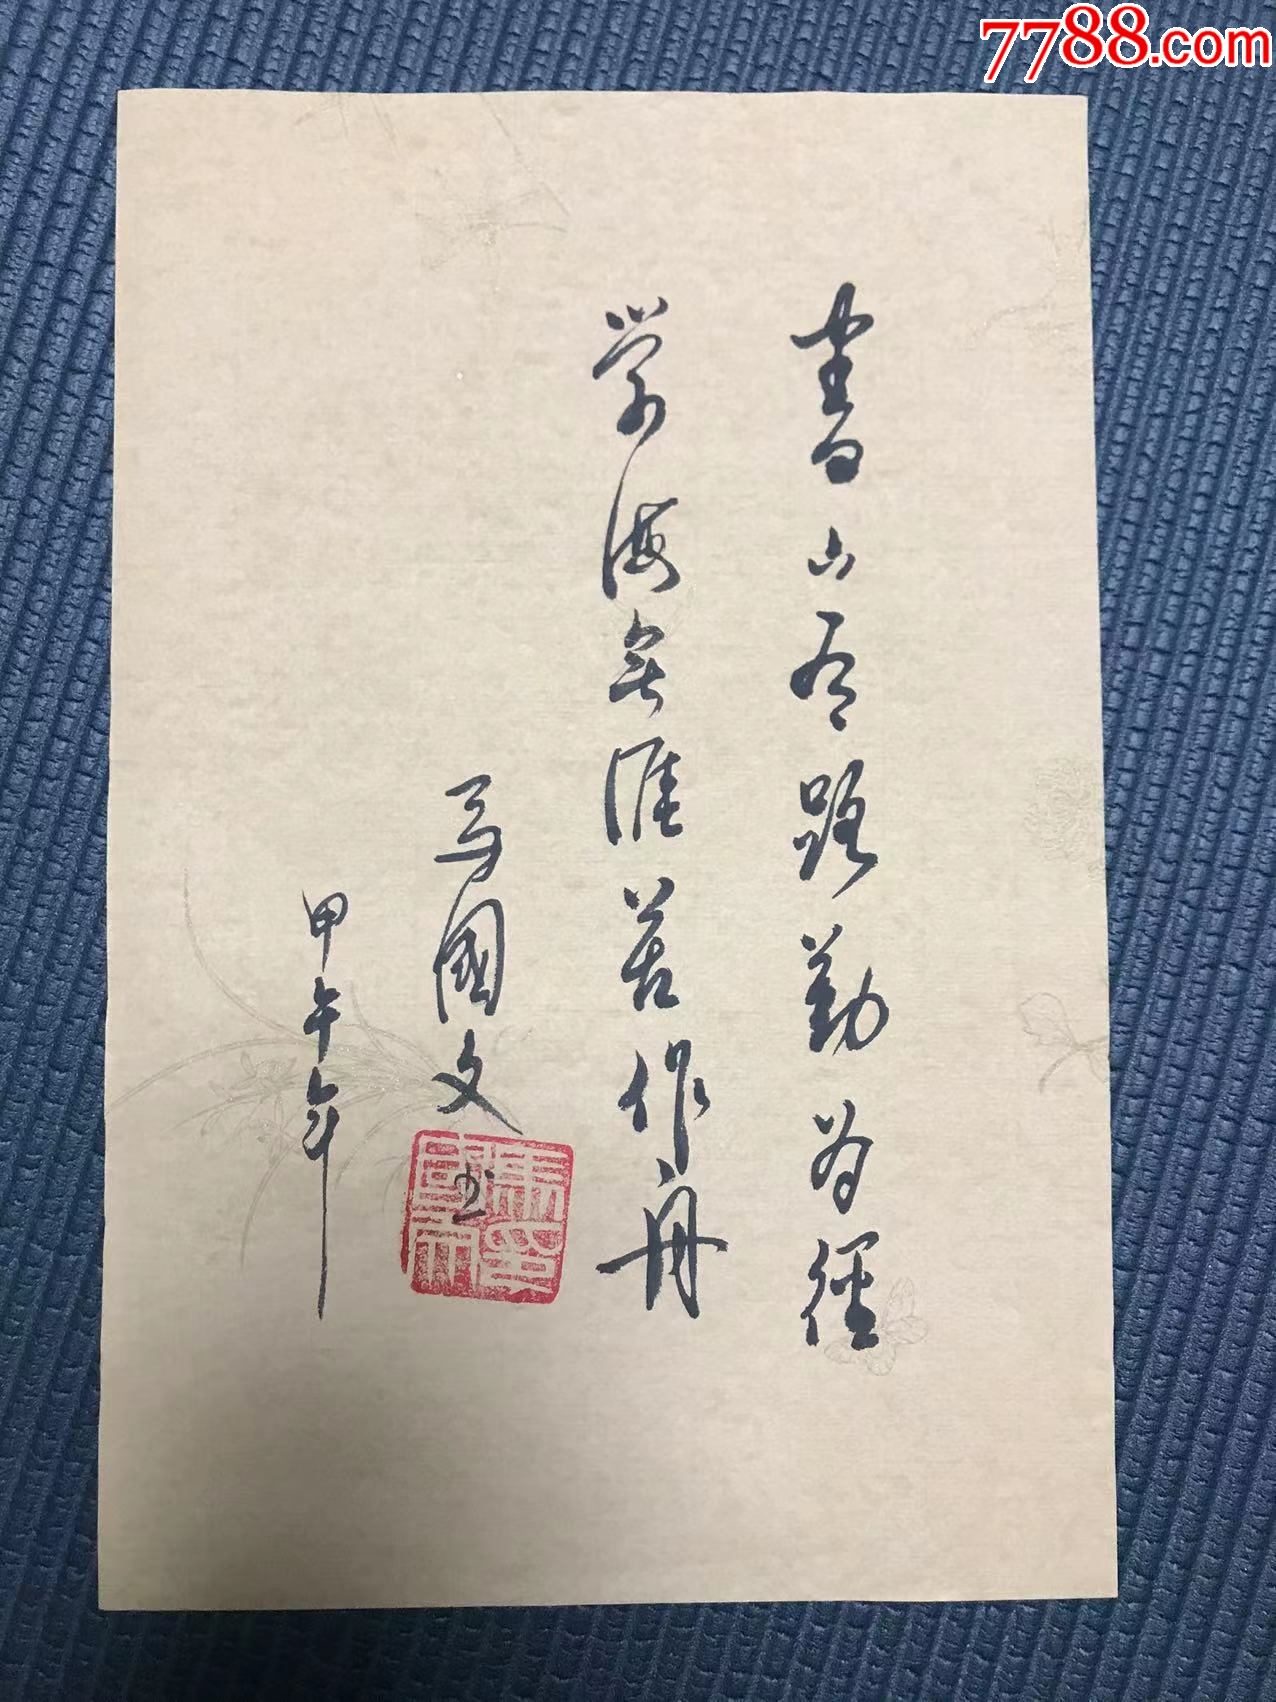 7788.com
書山有路勤為徑
学海無涯苦作舟
馬國文
甲午年